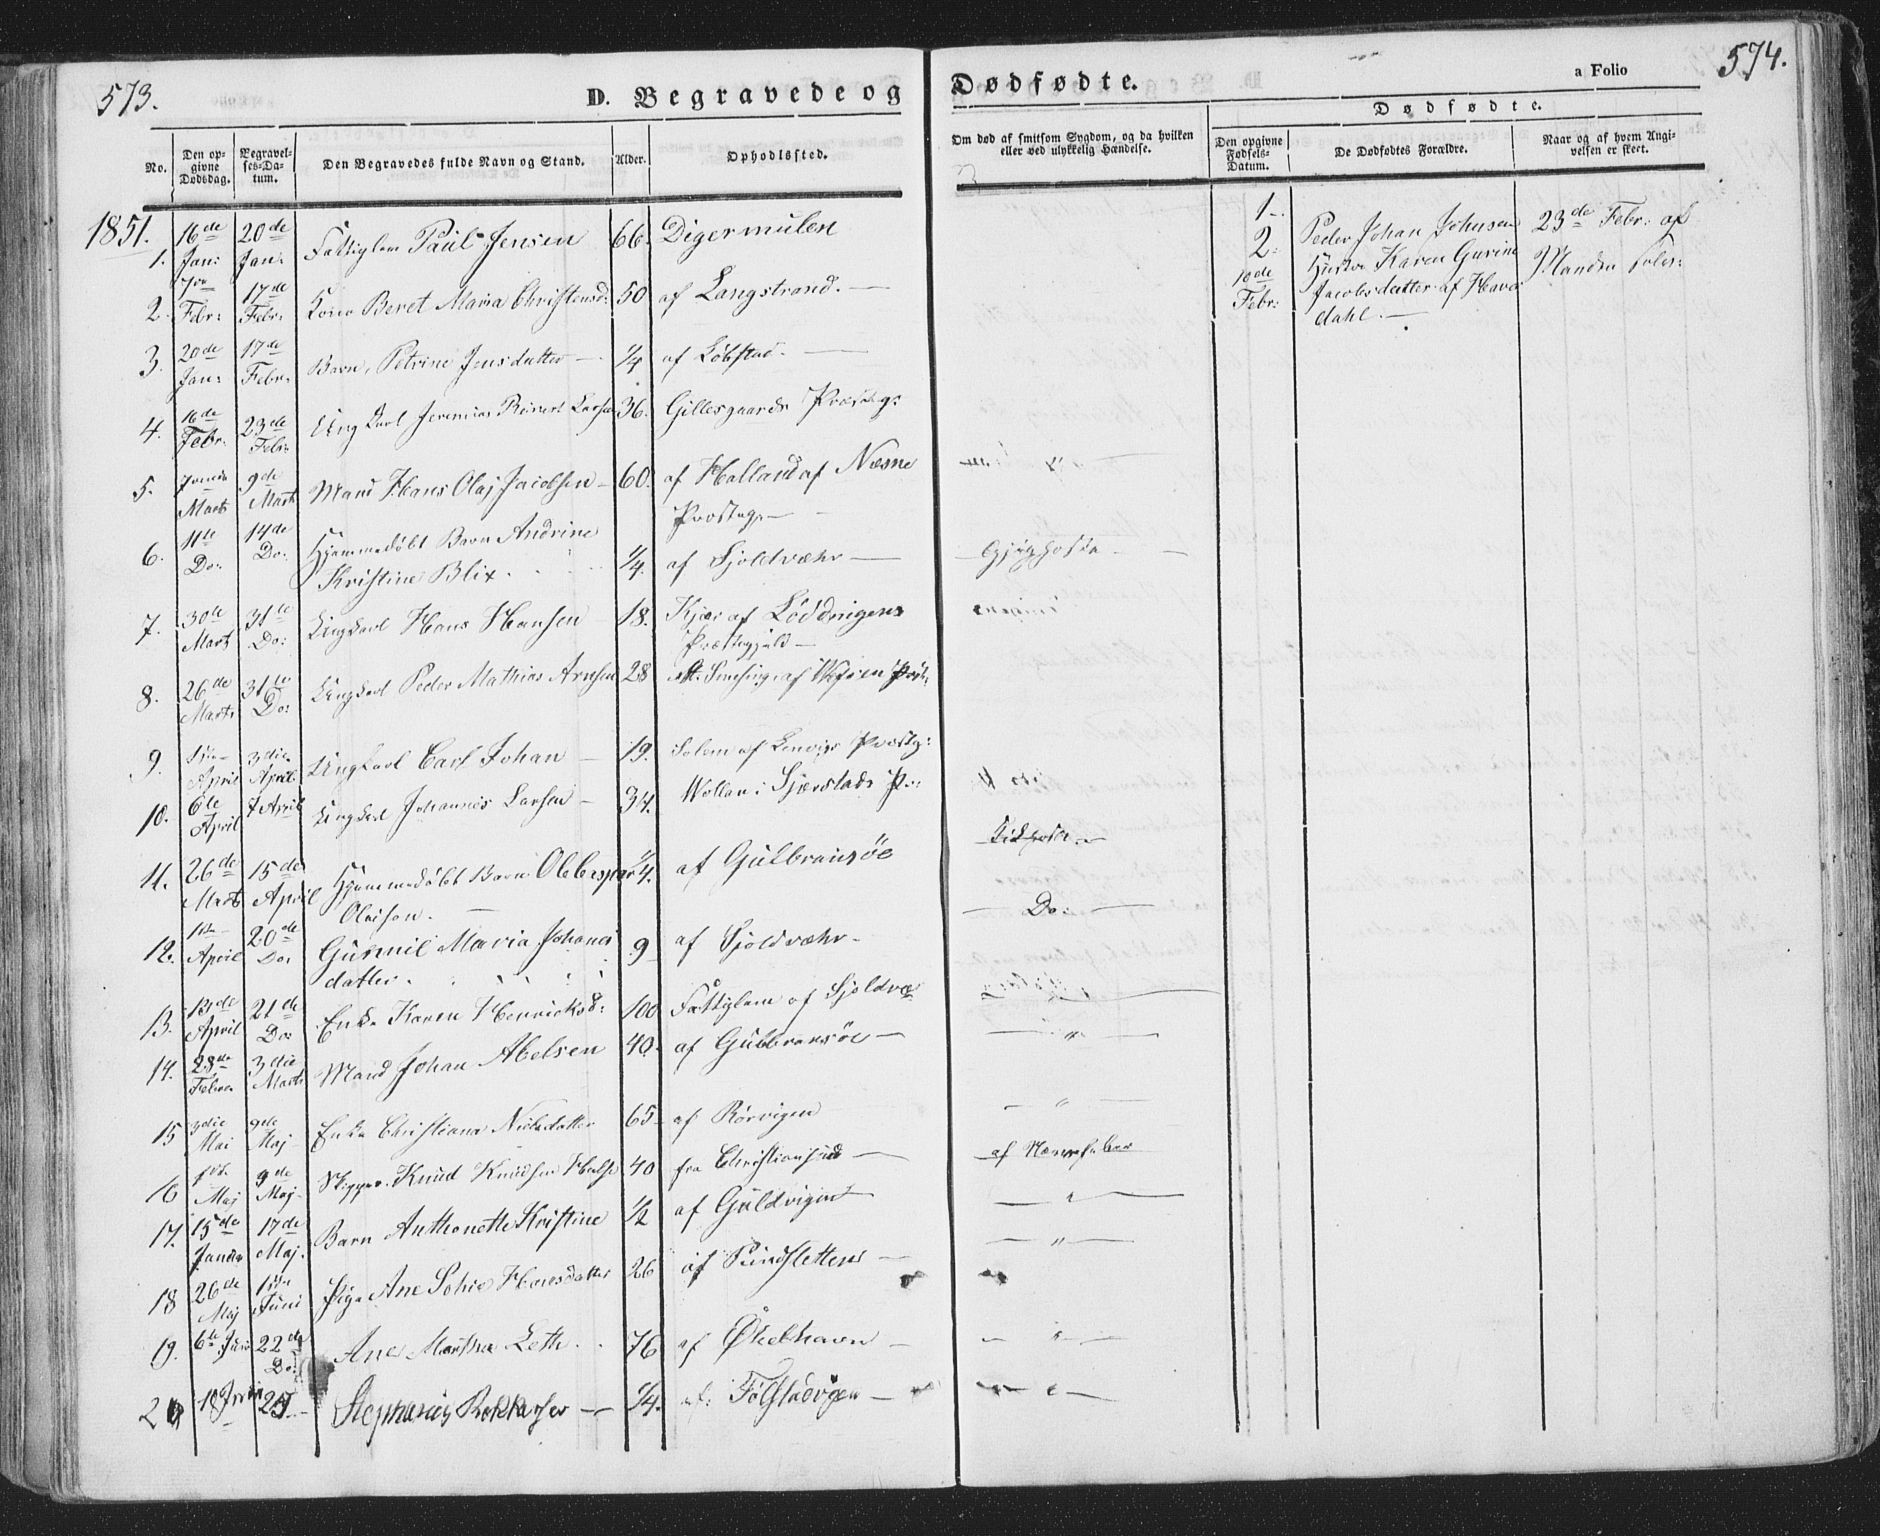 573.
D. Begravede og
Dødfødte.
a Folio
574.
Dødfødte.
No.
Den opgivne Dødsdag.
Begravelses-Datum.
Den Begravedes fulde Navn og Stand.
Alder.
Ophodlssted.
Om død af smitsom Sygdom, og da hvilken
eller ved ulykkelig Hændelse.
Den opgivne Fødsels-Datum.
De Dødfødtes Forældre.
Naar og af hvem Angivelsen er skeet.
1851.
1. 16de Jan: 20de Jan: Fattiglem Paul Jensen 66. Digermulen
2. Febr: 17de Febr: Kone Beret Maria Christensd: 50 af Langstrand. —
3. 20de Jan: 17de Febr: Barn, Petrine Jensdatter — 1/4 af Løbstad. —
4. 16de Febr. 23de Febr: Ungkarl Jeremias Reinert Larsen 36. Gillesgaards Præsteg:
5. Marts 9de Marts Mand Hans Olaj Jacobsen — 60. af Halland af Næsne
Præsteg. —
6. 11te Do: 14de Do: Hjemmedøbt Barn Andrine
Kristine Blix. 1/4. af Sjoldvæhr —
7. 30te Marts 31te Do: Ungkarl Hans Hansen 18. Kjær af Løddingens
Præstegjeld —
8. 26de Marts 31te Do: Ungkarl Peder Mathias Arnsen 28 af Wefsen
9. April 3die April Ungkarl Carl Johan — 19. Solem af Lenvigs Præstg:
10. 6te April 7 April Ungkarl Johannes Larsen — 34. Wollan i Sjærstads Pr:
11. 26de Marts 15de April Hjemmedøbt Barn
Olaisen. — 1/4. af Gulbransøe
12. 1ste April 20de Do: Gunnil Maria Johanes
datter. 9 af Sjoldvæhr.
13. 13de April 21de Do: Enke Karen Henricksd: 100 Fattiglem af Sjoldvæ
14. 28de Febr. 3die Marts Mand Johan Abelsen 40. af Gulbransøe —
15 3die Mai 9de Maj Enke Christiana Nielsdatter 65 af Rørvigen
16 Maj 9de Maj. Skipper Knud Knudsen 40 fra Christiansund —
17. 15de Januar 17de Maj. Barn Anthonette Kristine 1/2 af Guldvigen
18 26de Maj 1ste Juni Pige Ane Sohie Hansdatter 26 af Sundsletten —
19. 6te Juni 22de Do: Ane Martha Leth. 76 af Økelhavn —
20 18 Juni Stephanus — 1/4.
Kikhoste —
— Do: —
1.
2.
10de
Febr:
Peder Johan Johnsen
Hustru Karen Gurine
Jacobsdatter af Hava
dahl. —
23de Febr: af
Manden